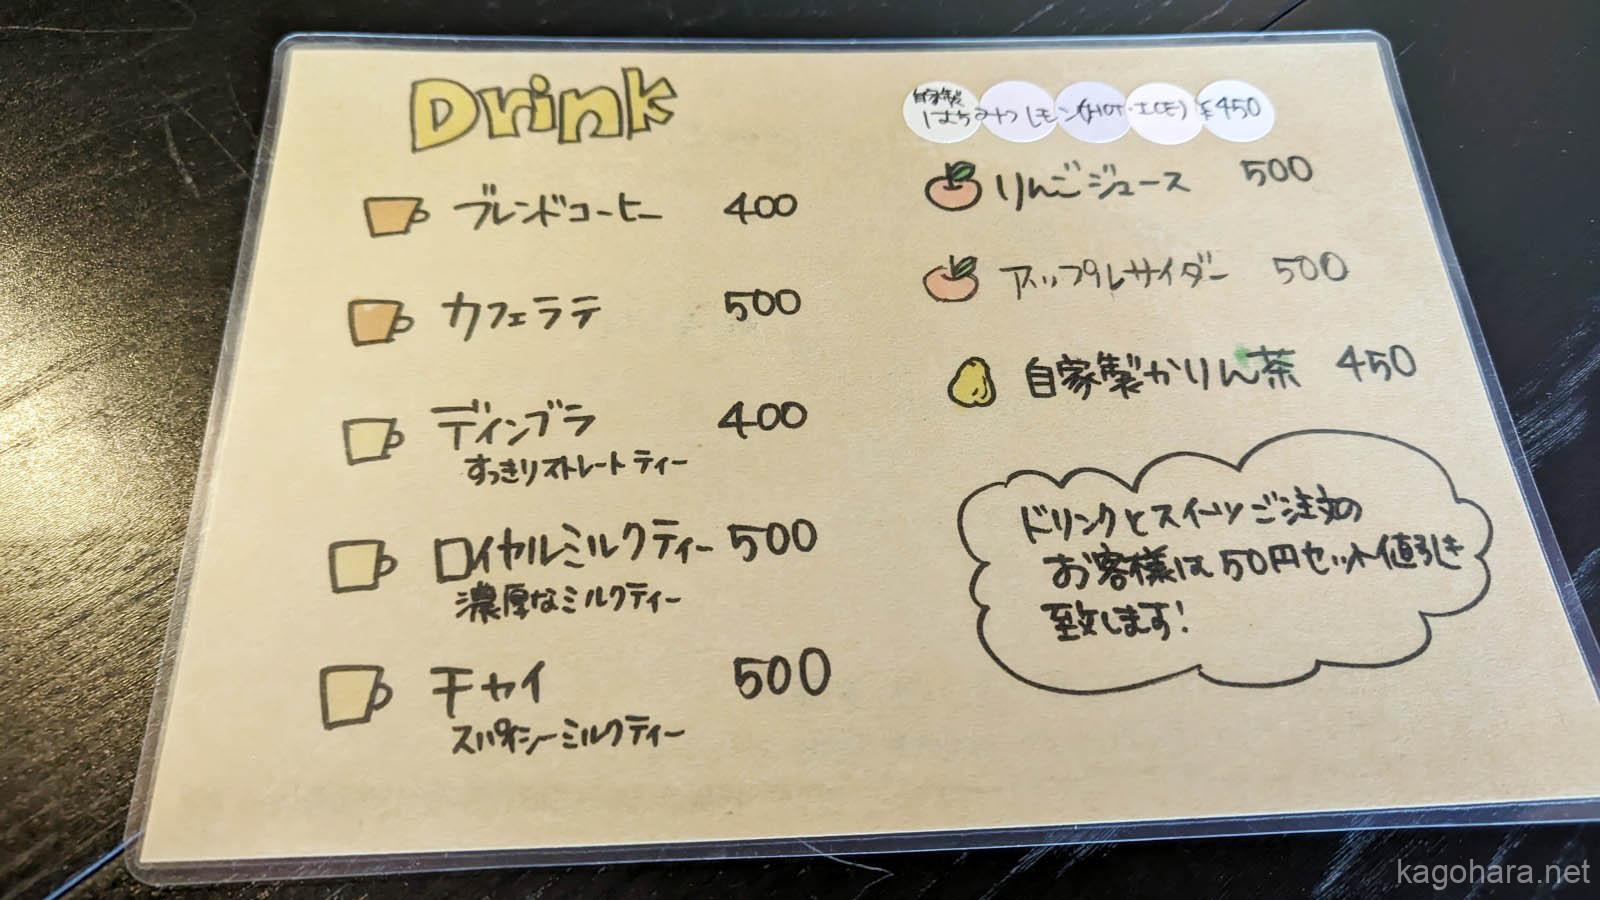 Drink
ブレンドコーヒー 400
カフェラテ 500
ディンブラ 400
すっきりストレートティー
ロイヤルミルクティー 500
濃厚なミルクティー
チャイ 500
スパイシーミルクティー
自家製
はちみつレモン(HOT・ICE) ¥450
りんごジュース 500
アップルサイダー 500
自家製かりん茶 450
ドリンクとスイーツご注文の
お客様は50円セット値引き
致します!
kagohara.net